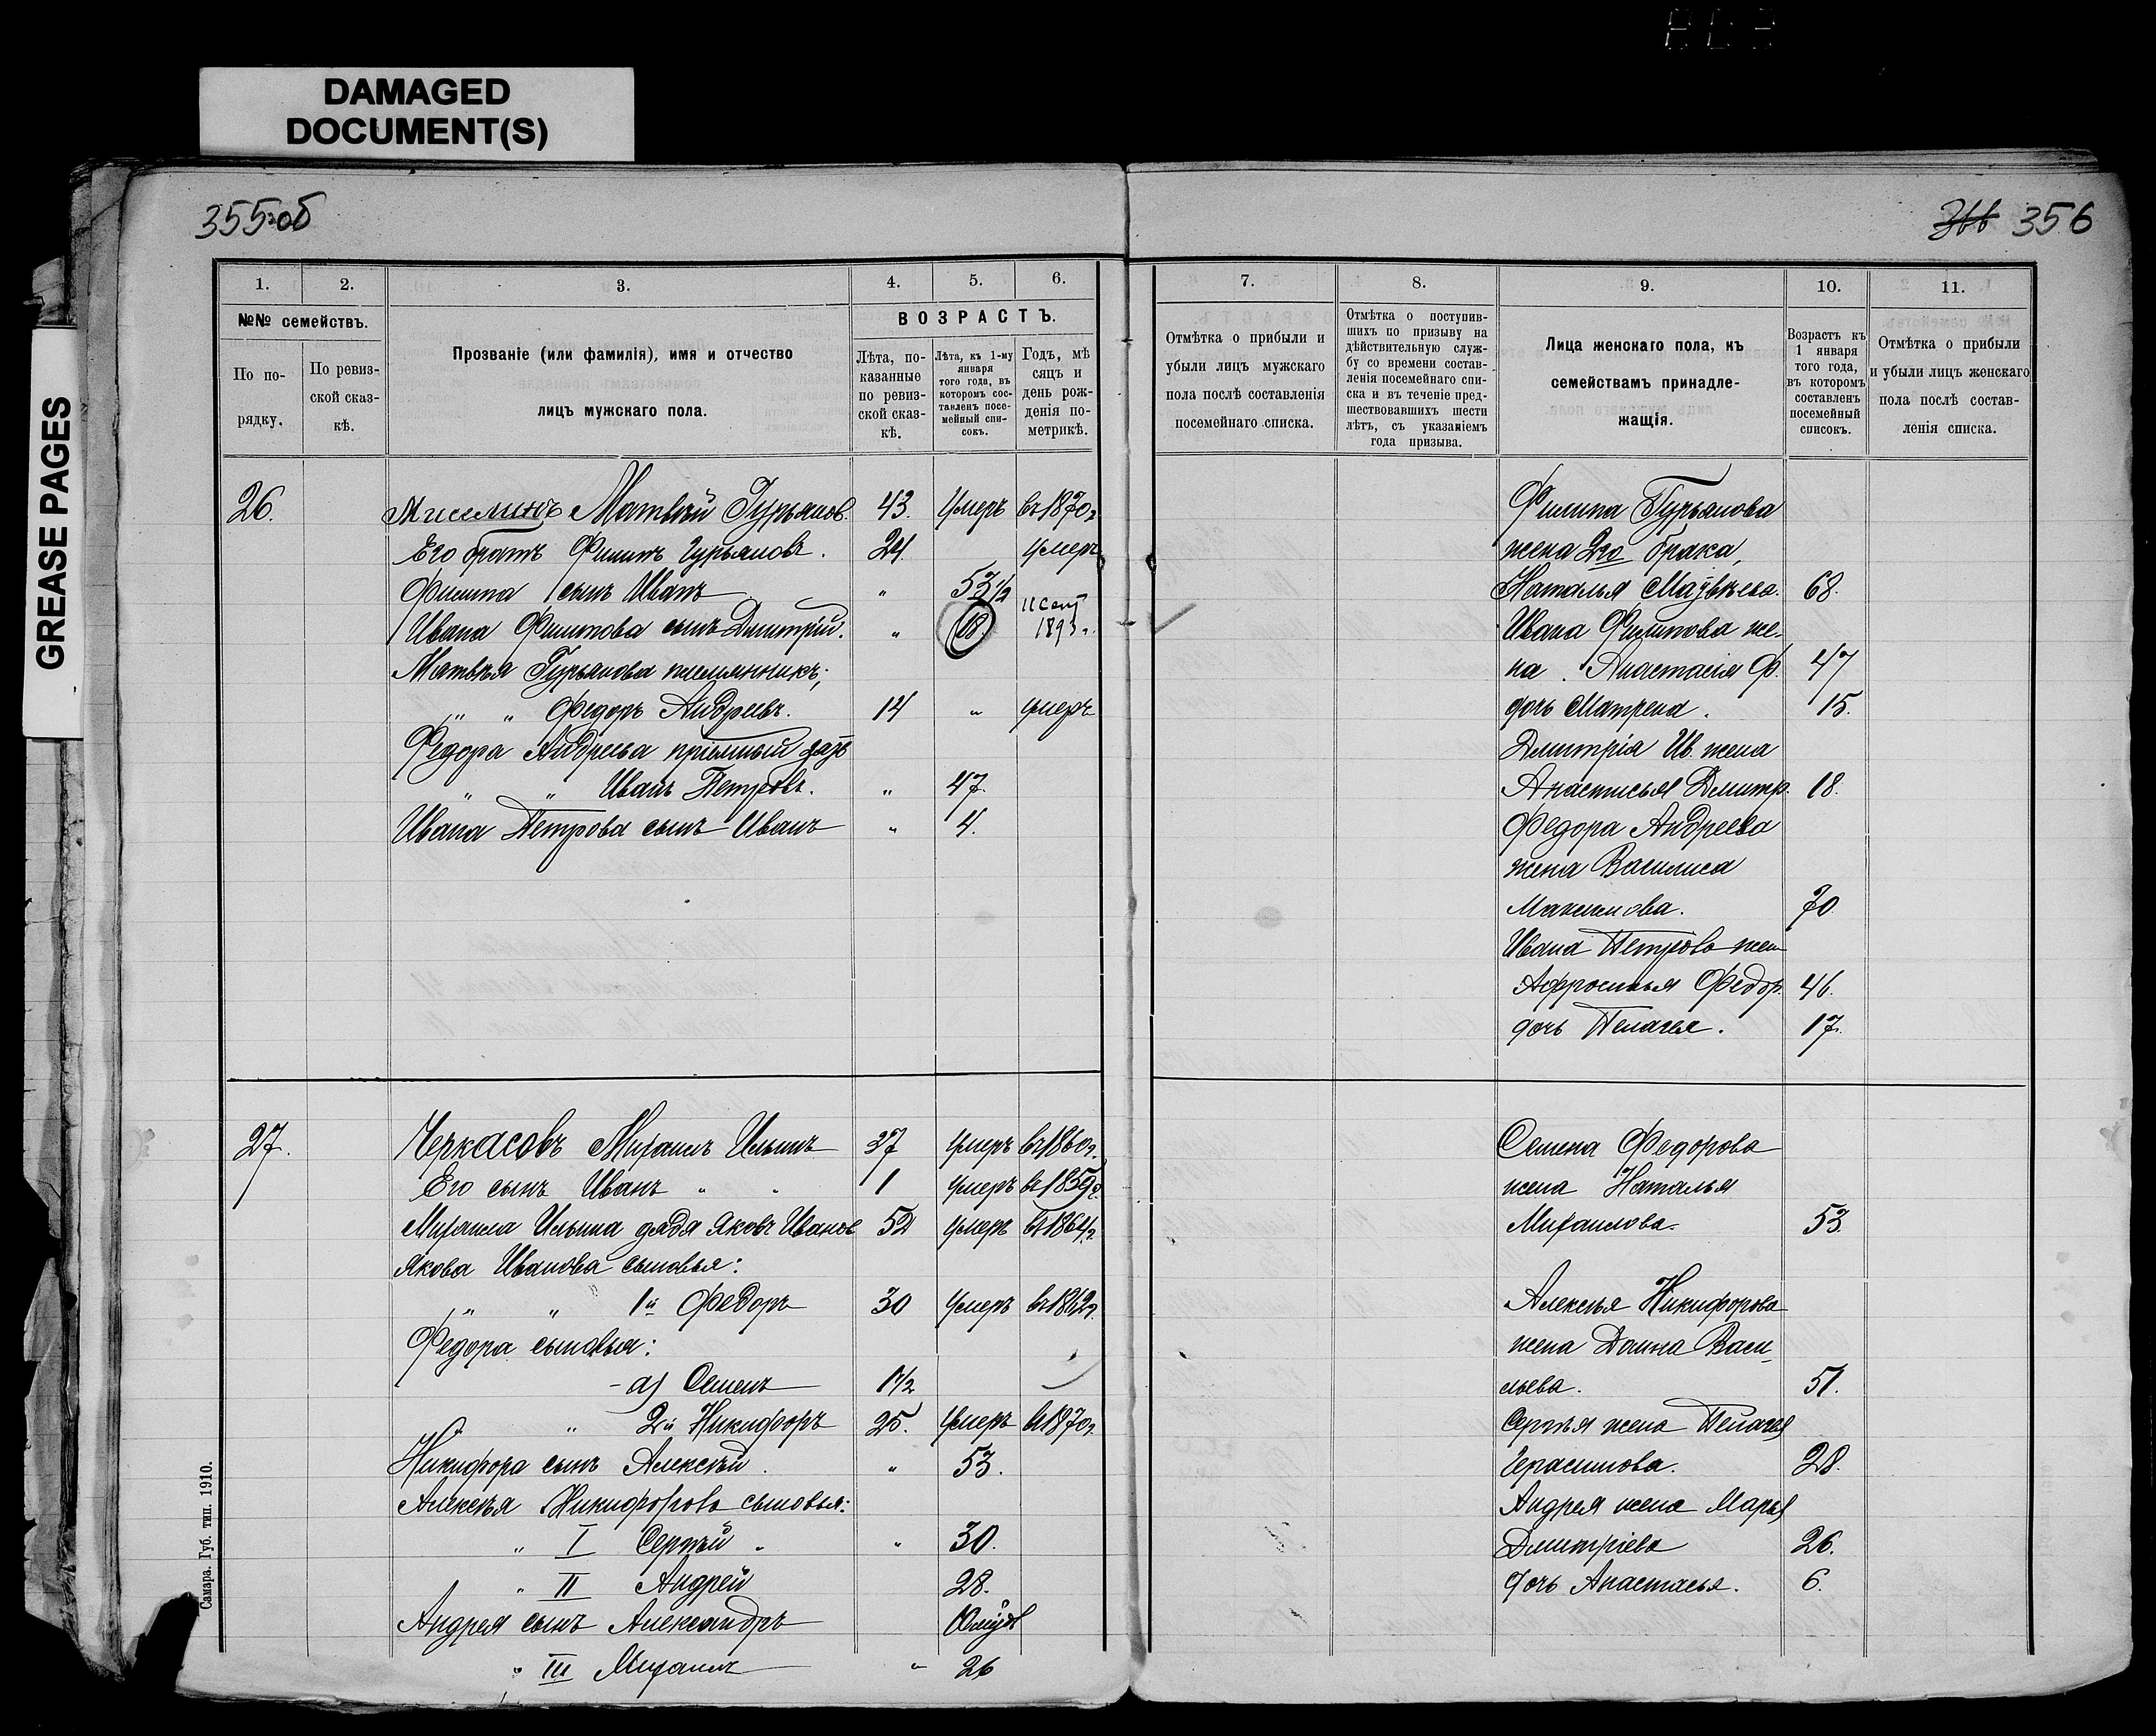 DAMAGED
DOCUMENT(S)
GREASE PAGES
355 об
356
1.
2.
3.
4.
5.
6.
№№ семействъ.
По по-
рядку.
По ревиз-
ской сказ-
кѣ.
Прозваніе (или фамилія), имя и отчество
лицъ мужскаго пола.
ВОЗРАСТЪ.
Лѣта, по-
казанные
по ревиз-
ской сказ-
кѣ.
Лѣта, къ 1-му
января
того года, въ
которомъ сос-
тавленъ посе-
мейный спи-
сокъ.
Годъ, мѣ
сяцъ и
день рож-
денія по-
метрикѣ.
26. Матвѣй Гурьянов. 43. умеръ въ 1870 г.
Его братъ Филипъ Гурьяновъ. 24 умеръ
Филипа сынъ Иванъ " 53 1/2
Ивана Филипова сынъ Дмитрій. " 18. 11 сент 1893 г.
Матвѣя Гурьянова племянникъ;
" " Федоръ Андреевъ. 14 " умеръ
Федора Андреева пріемный зять
" " Иванъ Петровъ. " 47.
Ивана Петрова сынъ Иванъ " 4.
27. Черкасовъ Михаилъ Ильинъ 37 умеръ въ 1860 г.
Его сынъ Иванъ " " 1 умеръ въ 1859 г.
Михаила Ильина дядя Яковъ Иванов 52 умеръ въ 1864 г.
Якова Иванова сыновья:
" " 1й Федоръ 30 умеръ въ 1862 г.
Федора сыновья:
- а) Семенъ 1 1/2
" 2й Никифоръ 25. умеръ въ 1870 г.
Никифора сынъ Алексѣй. " 53.
Алексѣя Никифорова сыновья:
" I Сергѣй " " 30.
" II Андрей 28.
Андрея сынъ Александръ
" III Михаилъ " 26
Самара. Губ. тип. 1910.
7.
8.
9.
10.
11.
Отмѣтка о прибыли и
убыли лицъ мужскаго
пола послѣ составленія
посемейнаго списка.
Отмѣтка о поступив-
шихъ по призыву на
дѣйствительную служ-
бу со времени состав-
ленія посемейнаго спи-
ска и въ теченіе пред-
шествовавшихъ шести
лѣтъ, съ указаніемъ
года призыва.
Лица женскаго пола, къ
семействамъ принадле-
жащія.
Возрастъ къ
1 января
того года,
въ которомъ
составленъ
посемейный
списокъ.
Отмѣтка о прибыли
и убыли лицъ женскаго
пола послѣ состав-
ленія списка.
Филипа Гурьянова
жена 2го брака,
Наталья 68.
Ивана Филипова же-
на. Анастасія Ф. 47
дочь Матрена. 15.
Дмитрія Ив. жена
Анастасья Дмитр. 18.
Федора Андреева
жена Василиса
Максимова. 70
Ивана Петрова жен
Афросинья Федор. 46.
дочь Пелагея. 17.
Семена Федорова
жена Наталья
Михаилова. 53.
Алексѣя Никифорова
жена Домна Васи-
льева. 51.
Сергѣя жена Пелагея
Герасимова. 28.
Андрея жена Марья
Дмитріева 26.
дочь Анастасья. 6.